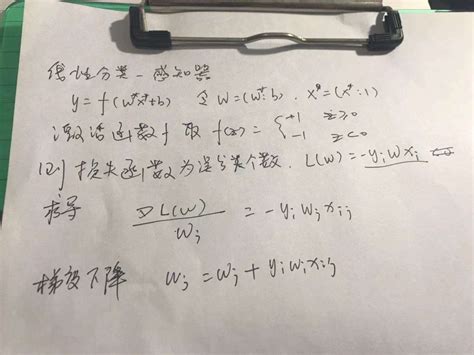 线性分类-感知器
y=f(w*x*+b) 令 w=(w*:b), x*=(x*:1)
激活函数f 取 f(z)={+1 z≥0
-1 z<0
则 损失函数为误分类个数, L(w)=-yᵢwxᵢ
求导 ∇L(w)/wⱼ = -yᵢwⱼxᵢⱼ
梯度下降 wⱼ=wⱼ+yᵢwᵢxᵢⱼ